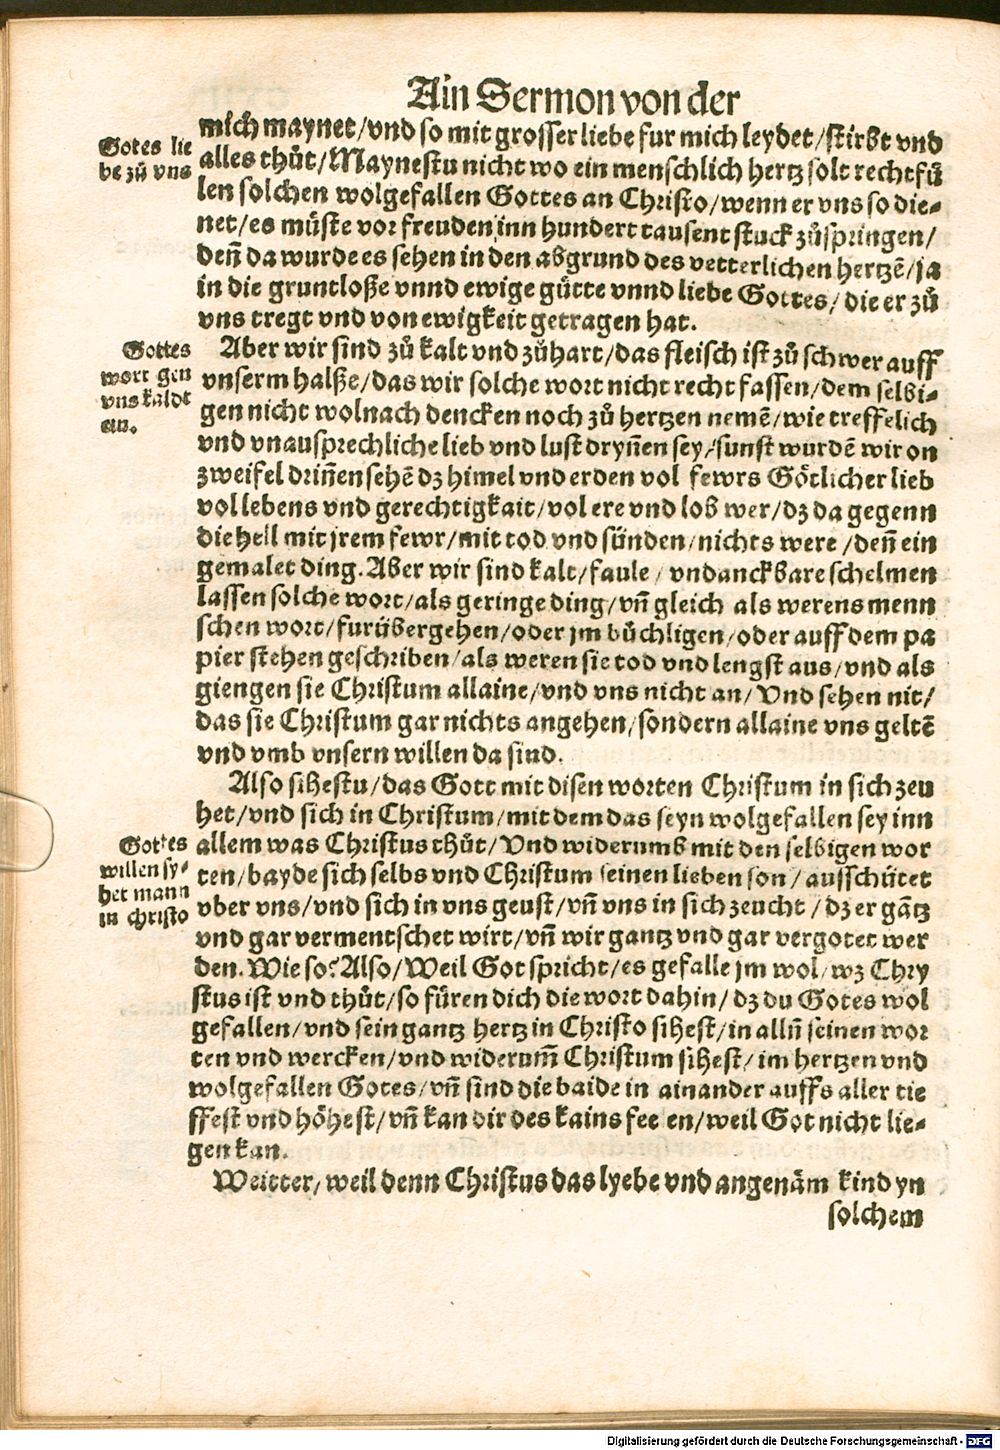 Ain Sermon von der
mich maynet/vnd so mit grosser liebe fur mich leydet/stirbt vnd
alles thůt/Maynestu nicht wo ein menschlich hertz solt recht fü
len solchen wolgefallen Gottes an Christo/wenn er vns so die⸗
net/es müste vor freuden inn hundert tausent stuck zůspringen/
deñ da wurde es sehen in den abgrund des vetterlichen hertzē/ja
in die gruntloße vnnd ewige gütte vnnd liebe Gottes/die er zů
vns tregt vnd von ewigkeit getragen hat.
Gotes lie
be zů vns
Aber wir sind zů kalt vnd zů hart/das fleisch ist zů schwer auff
vnserm halße/das wir solche wort nicht recht fassen/dem selbi⸗
gen nicht wol nach dencken noch zů hertzen nemē/wie treffelich
vnd vnausprechliche lieb vnd lust dryñen sey/sunst wurdē wir on
zweifel driñen sehē dz himel vnd erden vol fewrs Götlicher lieb
vol lebens vnd gerechtigkait/vol ere vnd lob wer/dz da gegenn
die hell mit jrem fewr/mit tod vnd sünden/nichts were/deñ ein
gemalet ding. Aber wir sind kalt/faule/vndanckbare schelmen
lassen solche wort/als geringe ding/vñ gleich als werens menn
schen wort/furübergehen/oder jm büchligen/oder auff dem pa
pier stehen geschriben/als weren sie tod vnd lengst aus/vnd als
giengen sie Christum allaine/vnd vns nicht an/Vnd sehen nit/
das sie Christum gar nichts angehen/sondern allaine vns geltē
vnd vmb vnsern willen da sind.
Gottes
wort gen
vns kaldt
an.
Also sihestu/das Gott mit disen worten Christum in sich zeu
het/vnd sich in Christum/mit dem das seyn wolgefallen sey inn
allem was Christus thůt/Vnd widerumb mit den selbigen wor
ten/bayde sich selbs vnd Christum seinen lieben son/ausschütet
vber vns/vnd sich in vns geust/vñ vns in sich zeucht/dz er gātz
vnd gar vermentschet wirt/vñ wir gantz vnd gar vergotet wer
den. Wie so? Also/Weil Got spricht/es gefalle jm wol/wz Chry
stus ist vnd thůt/so füren dich die wort dahin/dz du Gotes wol
gefallen/vnd sein gantz hertz in Christo sihest/in allñ seinen wor
ten vnd wercken/vnd widerum̃ Christum sihest/im hertzen vnd
wolgefallen Gotes/vñ sind die baide in ainander auffs aller tie
ffest vnd höhest/vñ kan dir des kains fee en/weil Got nicht lie⸗
gen kan.
Gottes
willen sy⸗
het mann
in christo
Weitter/weil denn Christus das lyebe vnd angenäm kind yn
solchem
Digitalisierung gefördert durch die Deutsche Forschungsgemeinschaft - DFG